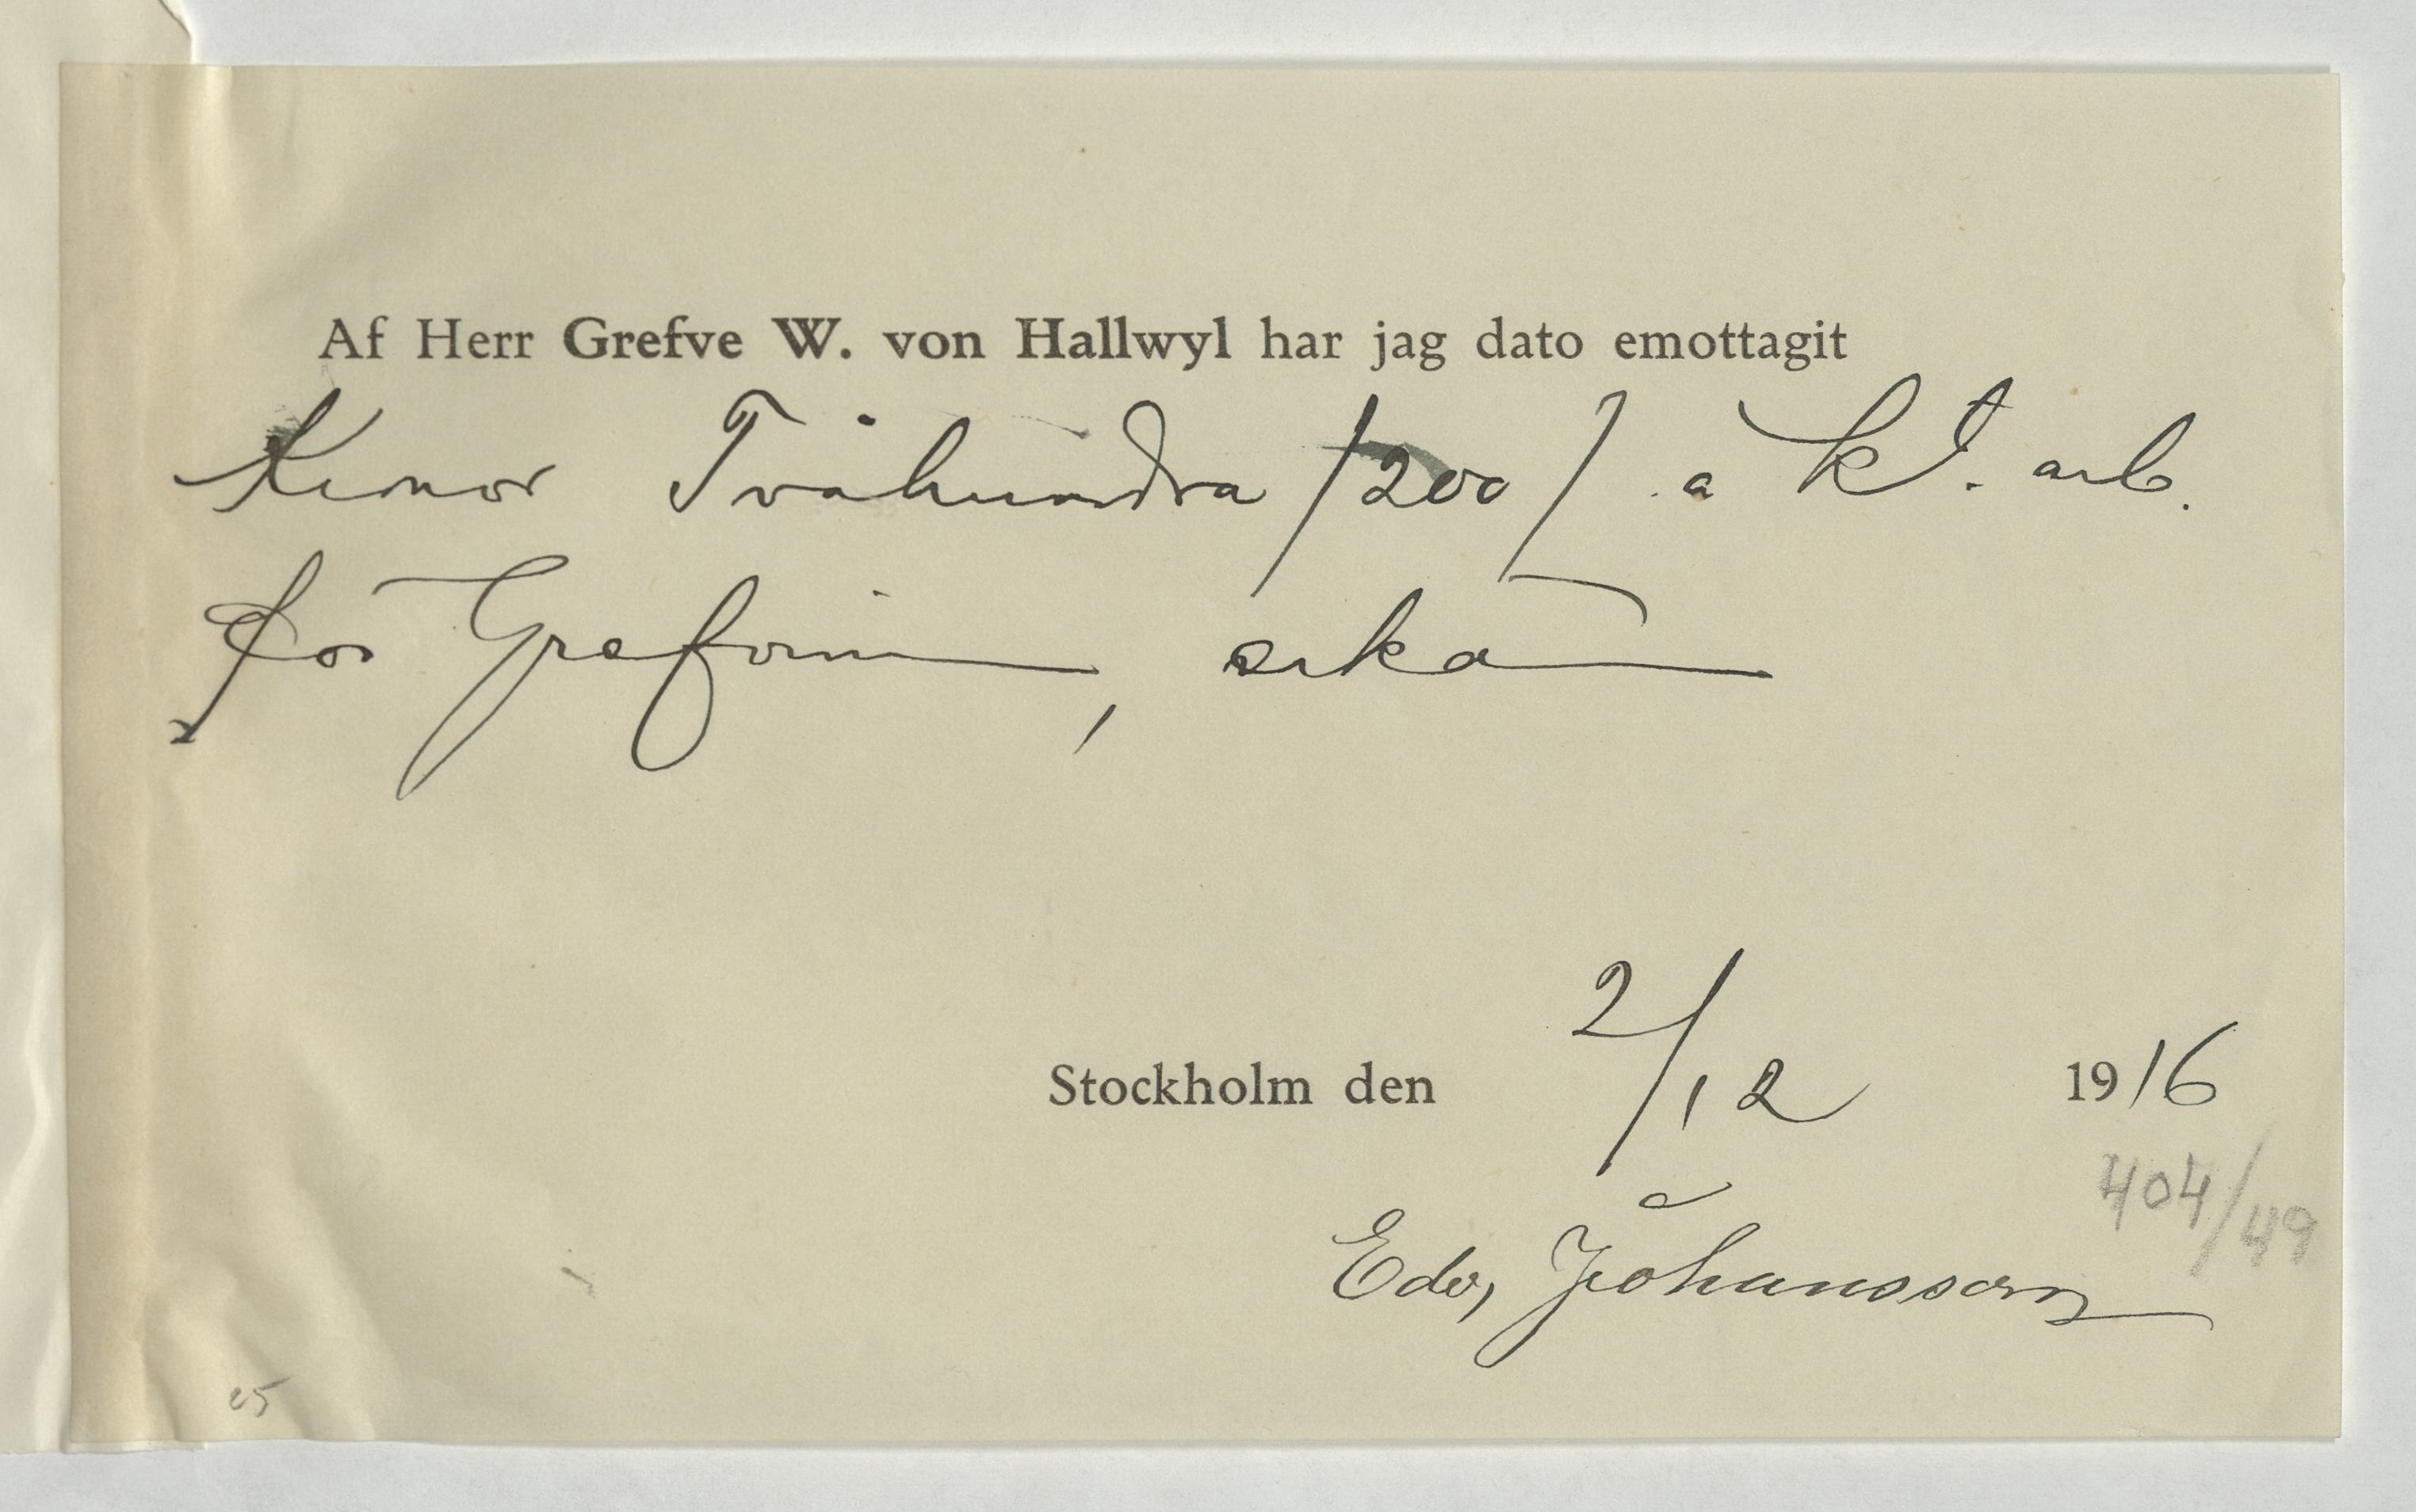 Af Herr Grefve W. von Hallwyl har jag dato emottagit
Kronor Tvåhundra /200/ a kt. arb.
för Grefvinn, erkän
Stockholm den 2/12 1916
404/49
Edv, Johansson
25